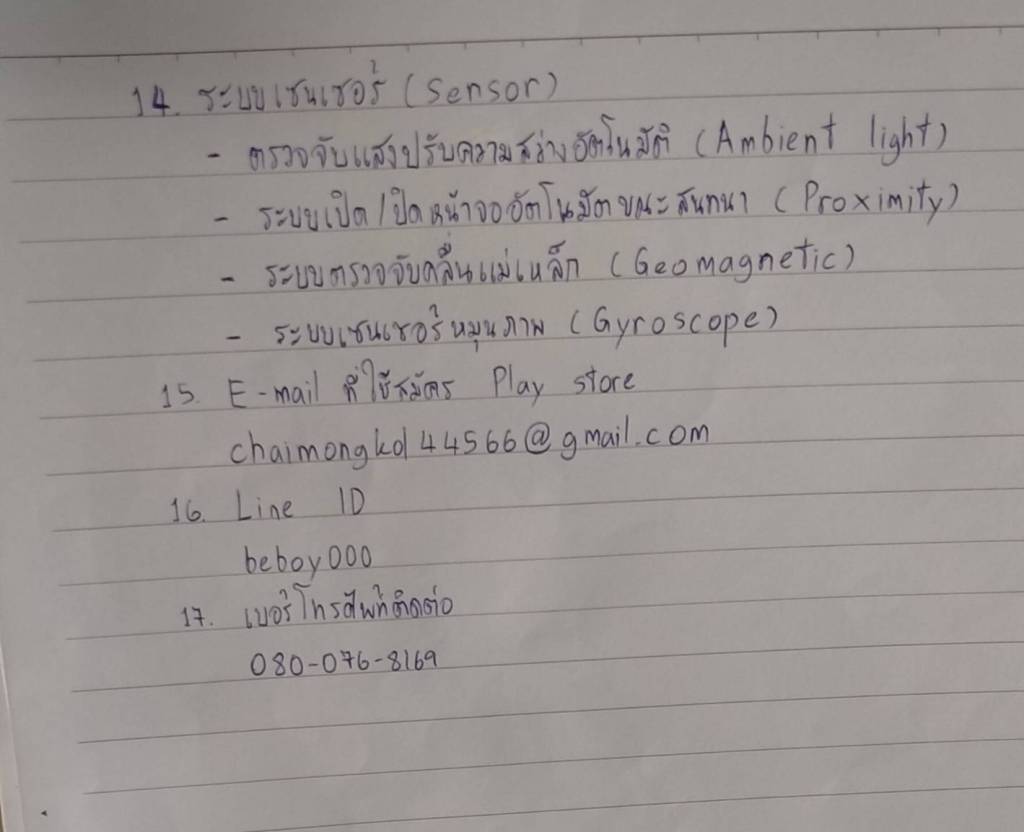 14. ระบบเซนเซอร์ (Sensor)
- ตรวจจับแสงปรับความสว่างอัตโนมัติ (Ambient light)
- ระบบเปิด/ปิดหน้าจออัตโนมัตขณะสนทนา (Proximity)
- ระบบตรวจจับคลื่นแม่เหล็ก (Geomagnetic)
- ระบบเซนเซอร์หมุนภาพ (Gyroscope)
15. E-mail ที่ใช้สมัคร Play store
chaimongkol44566@gmail.com
16. Line ID
beboy000
17. เบอร์โทรศัพท์ติดต่อ
080-076-8169